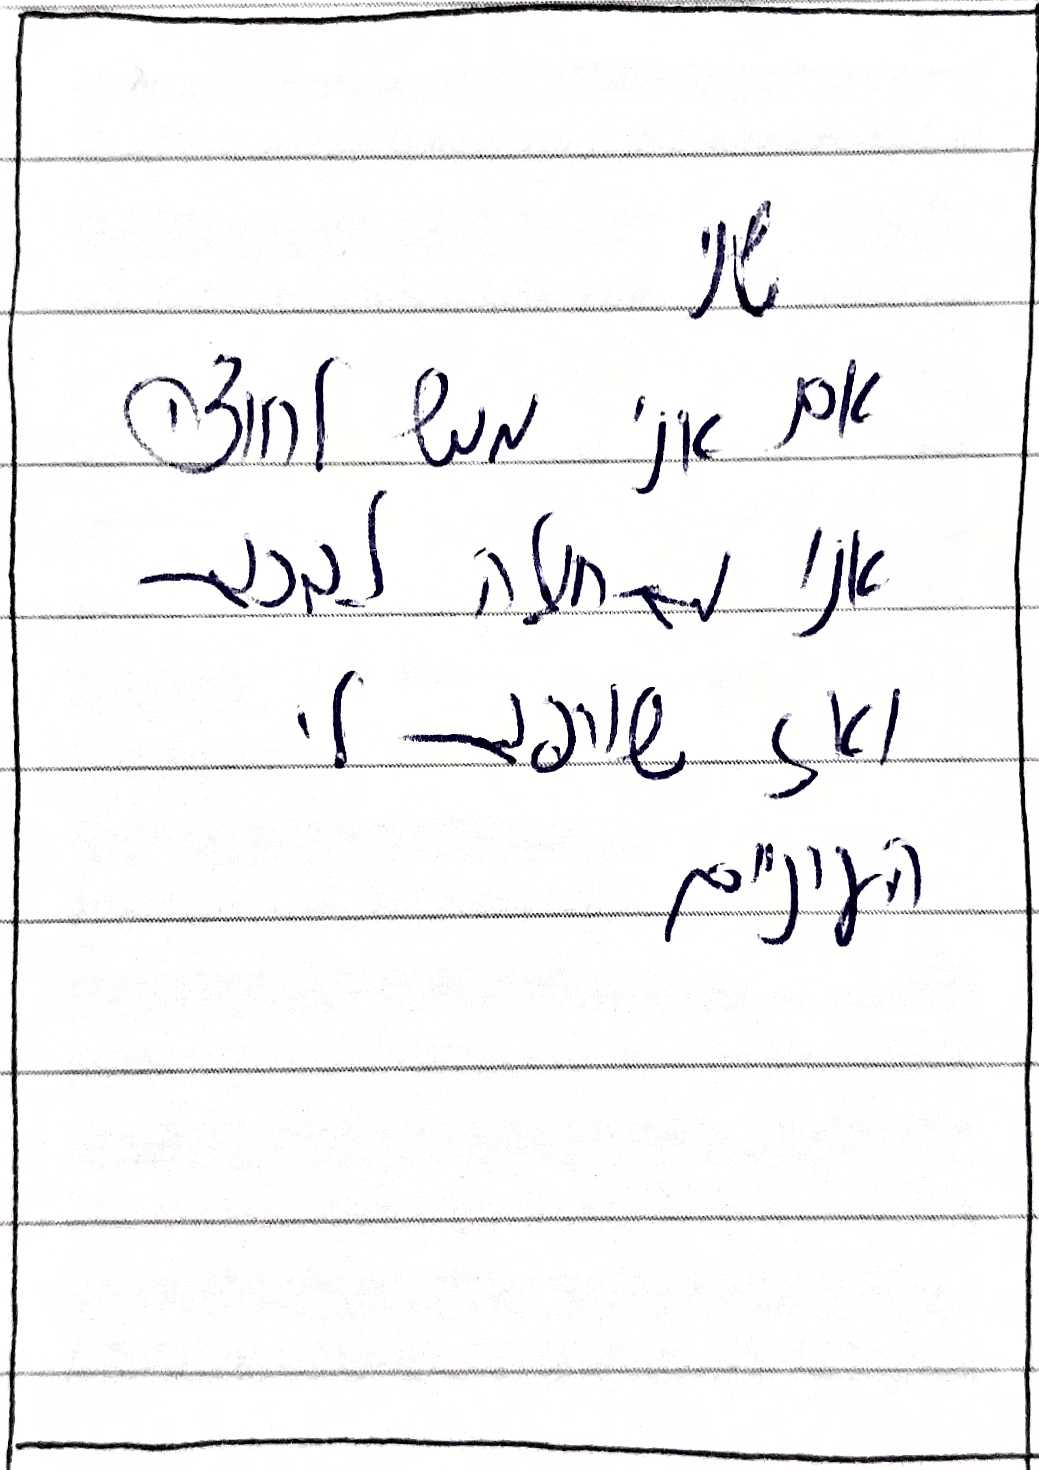 שני
אם אני ממש לחוצה
אני מתחילה לבכות
ואז שורפות לי
העיניים